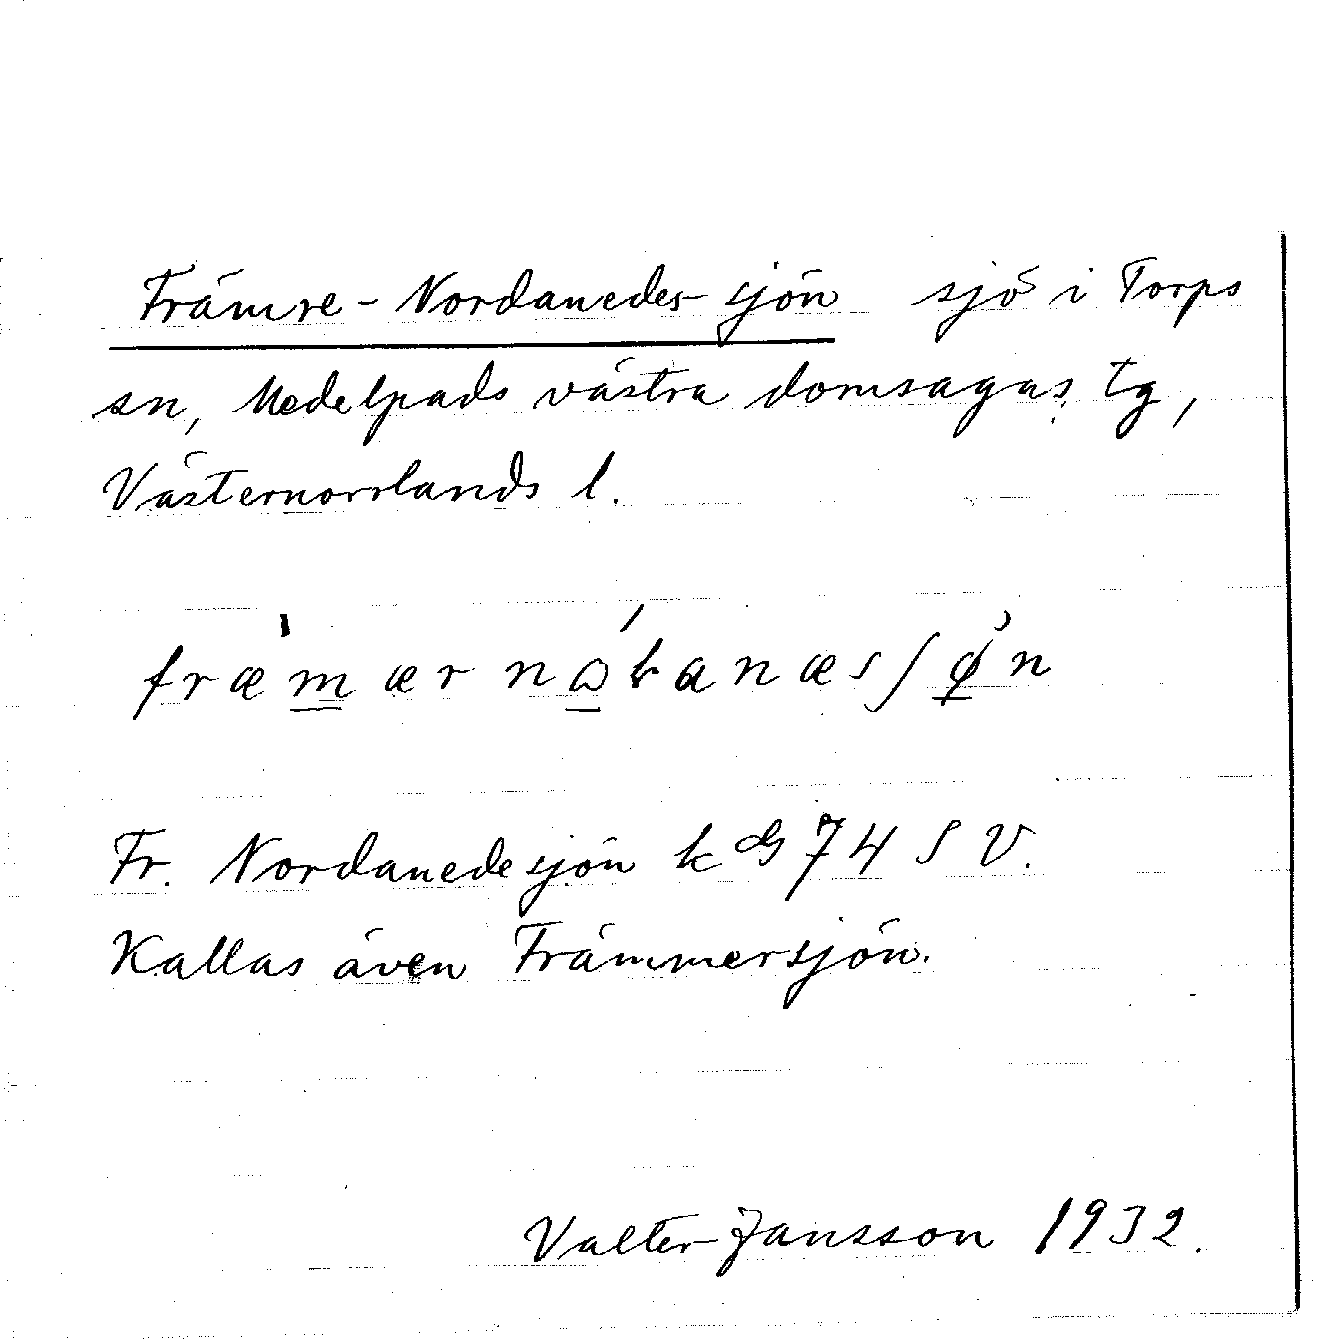 Främre-Nordanedes-sjön sjö i Torps
sn, Medelpads västra domsagas tg,
Västernorrlands l.
fræm̲ær nɷ̲́ɽanæsʃø̲̀n
Fr. Nordanedesjön k 74 S V.
Kallas även Främmersjön.
Valter Jansson 1932.